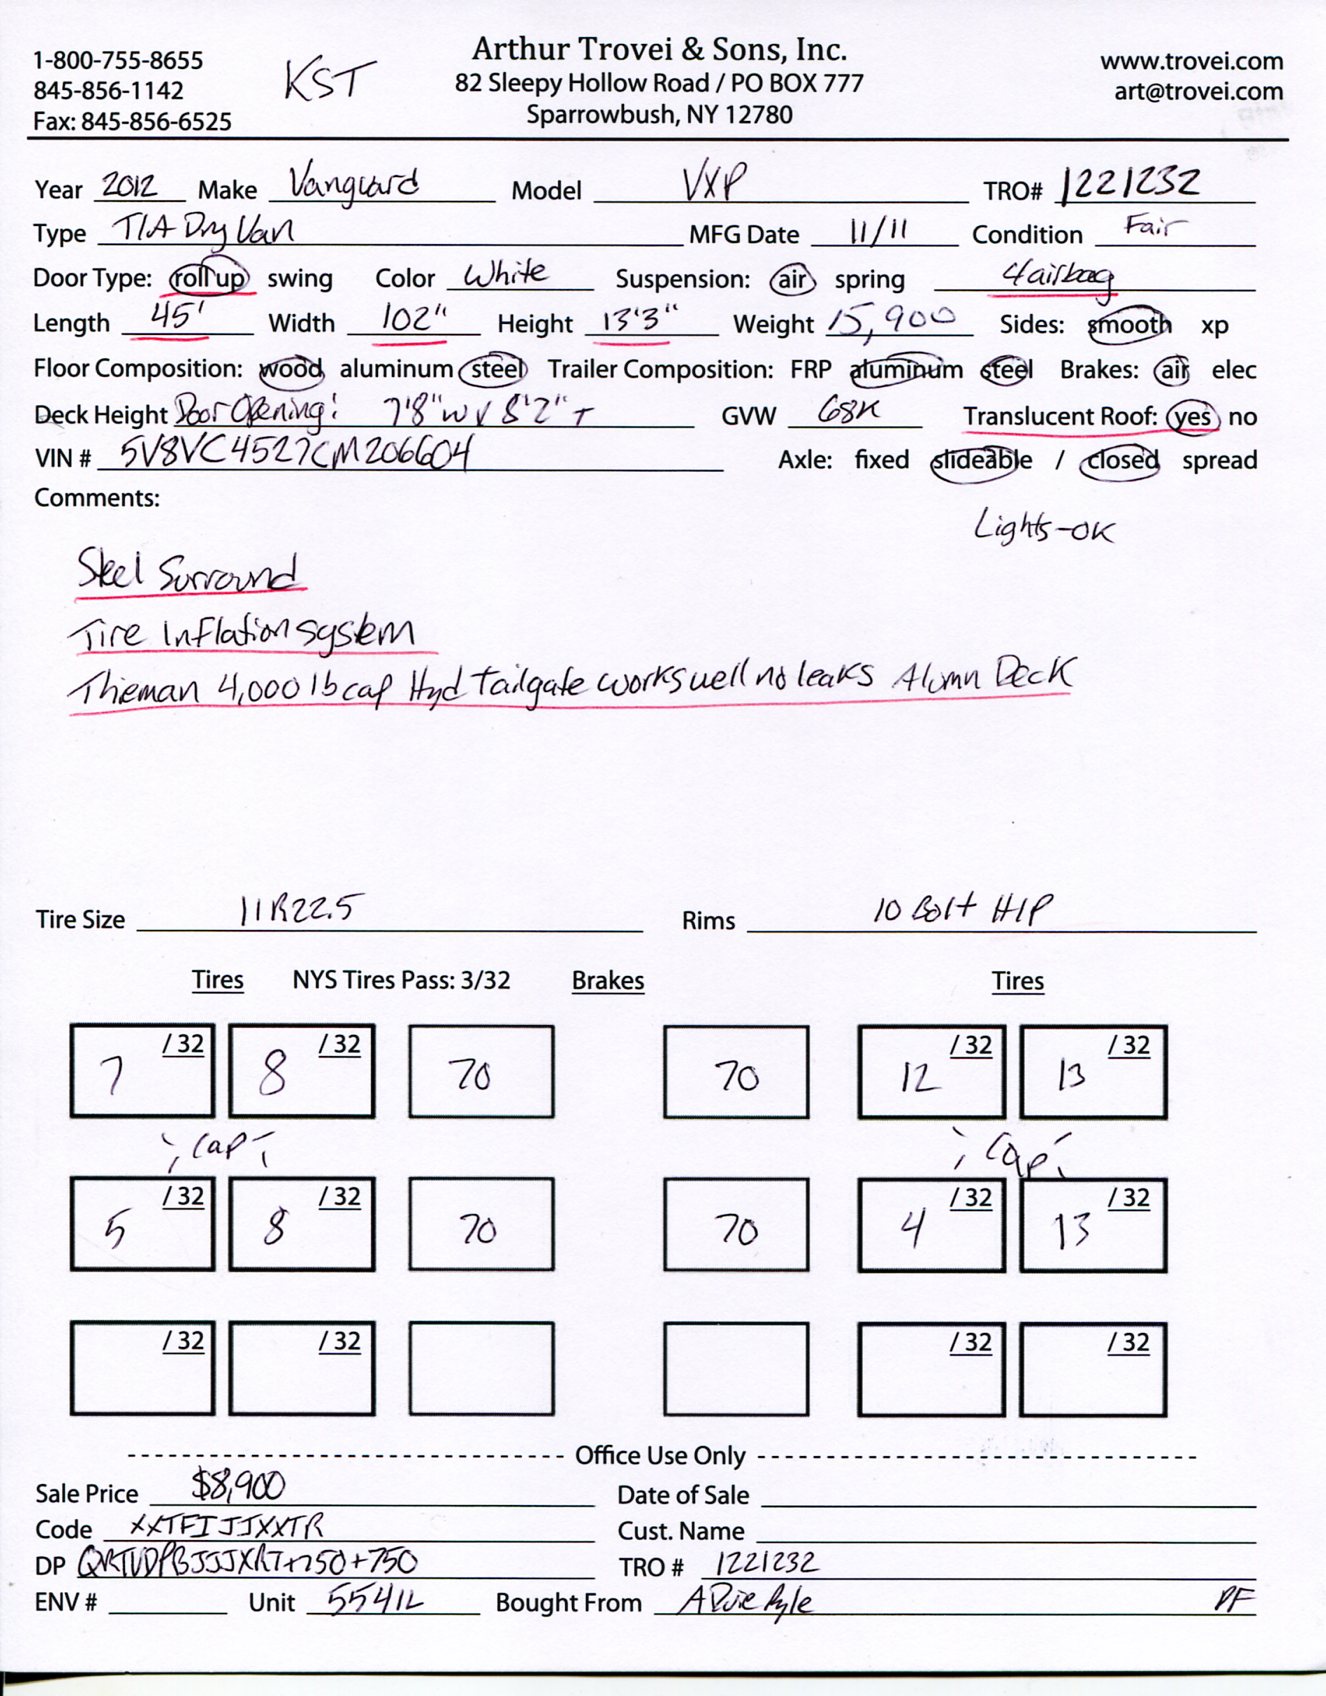 Arthur Trovei & Sons, Inc.
1-800-755-8655 KST 82 Sleepy Hollow Road / PO BOX 777 www.trovei.com
845-856-1142 Sparrowbush, NY 12780 art@trovei.com
Fax: 845-856-6525
Year 2012 Make Vanguard Model VXP TRO# 1221232
Type T/A Dry Van MFG Date 11/11 Condition Fair
Door Type: roll up swing Color White Suspension: air spring 4 airbag
Length 45' Width 102" Height 13'3" Weight 15,900 Sides: smooth xp
Floor Composition: wood aluminum steel Trailer Composition: FRP aluminum steel Brakes: air elec
Deck Height Door Opening: 7'8"W x 8'2" T GVW 68K Translucent Roof: yes no
VIN # 5V8VC4527CM206604 Axle: fixed slideable / closed spread
Comments:
Lights-OK
Steel Surround
Tire Inflation system
Thieman 4,000 lb cap Hyd tailgate works well no leaks Alumn Deck
Tire Size 11R22.5 Rims 10 Bolt H/P
Tires NYS Tires Pass: 3/32 Brakes Tires
7 /32 8 /32 70 70 12 /32 13 /32
Cap Cap
5 /32 8 /32 70 70 4 /32 13 /32
/32 /32 /32 /32
Office Use Only
Sale Price $8,900 Date of Sale
Code XXTFIJJXXTR Cust. Name
DP +750+750 TRO # 1221232
ENV # Unit 5541L Bought From A Duie Pyle PF